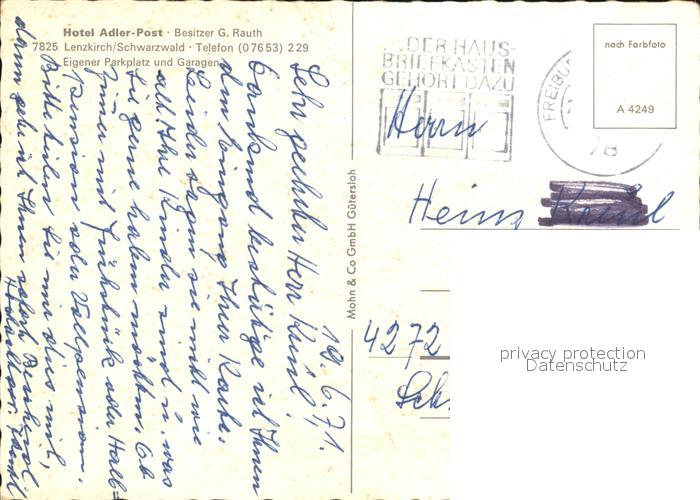 Hotel Adler-Post · Besitzer G. Rauth
7825 Lenzkirch/Schwarzwald · Telefon (07653) 229
Eigener Parkplatz und Garagen
19.6.71.
Sehr geehrter Herr
Dankend bestätige ich Ihnen
den Eingang Ihrer Karte.
Leider sagen sie nicht wie
alt Ihre Kinder sind u. was
Sie gerne haben möchten. Ob
Zimmer mit Frühstück oder Halb=
pension oder Vollpension.
Bitte teilen Sie mir dies mit,
dann gebe ich Ihnen sofort Bescheid.
Mohn & Co GmbH Gütersloh
...DER HAUS-
BRIEFKASTEN
GEHÖRT DAZU
FREIBU
nach Farbfoto
A 4249
Herrn
Heinz
4272
privacy protection
Datenschutz